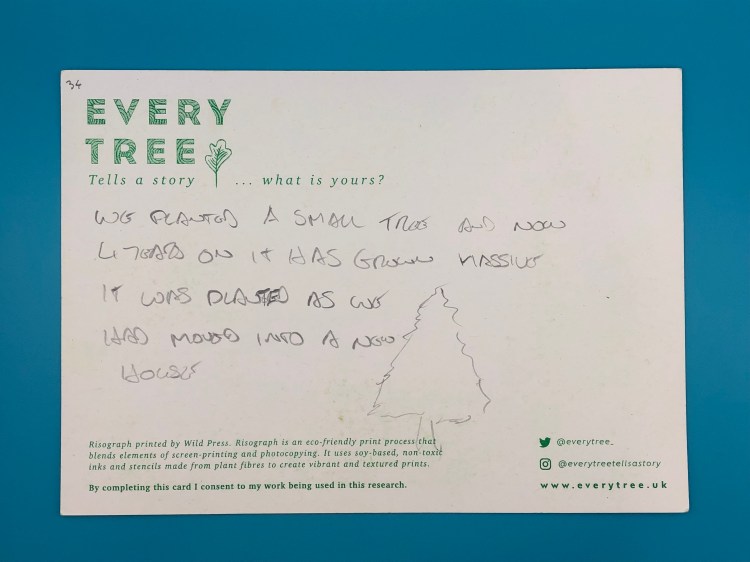 34
EVERY
TREE
Tells a story ... what is yours?
WE PLANTED A SMALL TREE AND NOW
4 YEARS ON IT HAS GROWN MASSIVE
IT WAS PLANTED AS WE
HAD MOVED INTO A NEW
HOUSE
Risograph printed by Wild Press. Risograph is an eco-friendly print process that
blends elements of screen-printing and photocopying. It uses soy-based, non-toxic
inks and stencils made from plant fibres to create vibrant and textured prints.
By completing this card I consent to my work being used in this research.
@everytree_
@everytreetellsastory
www.everytree.uk